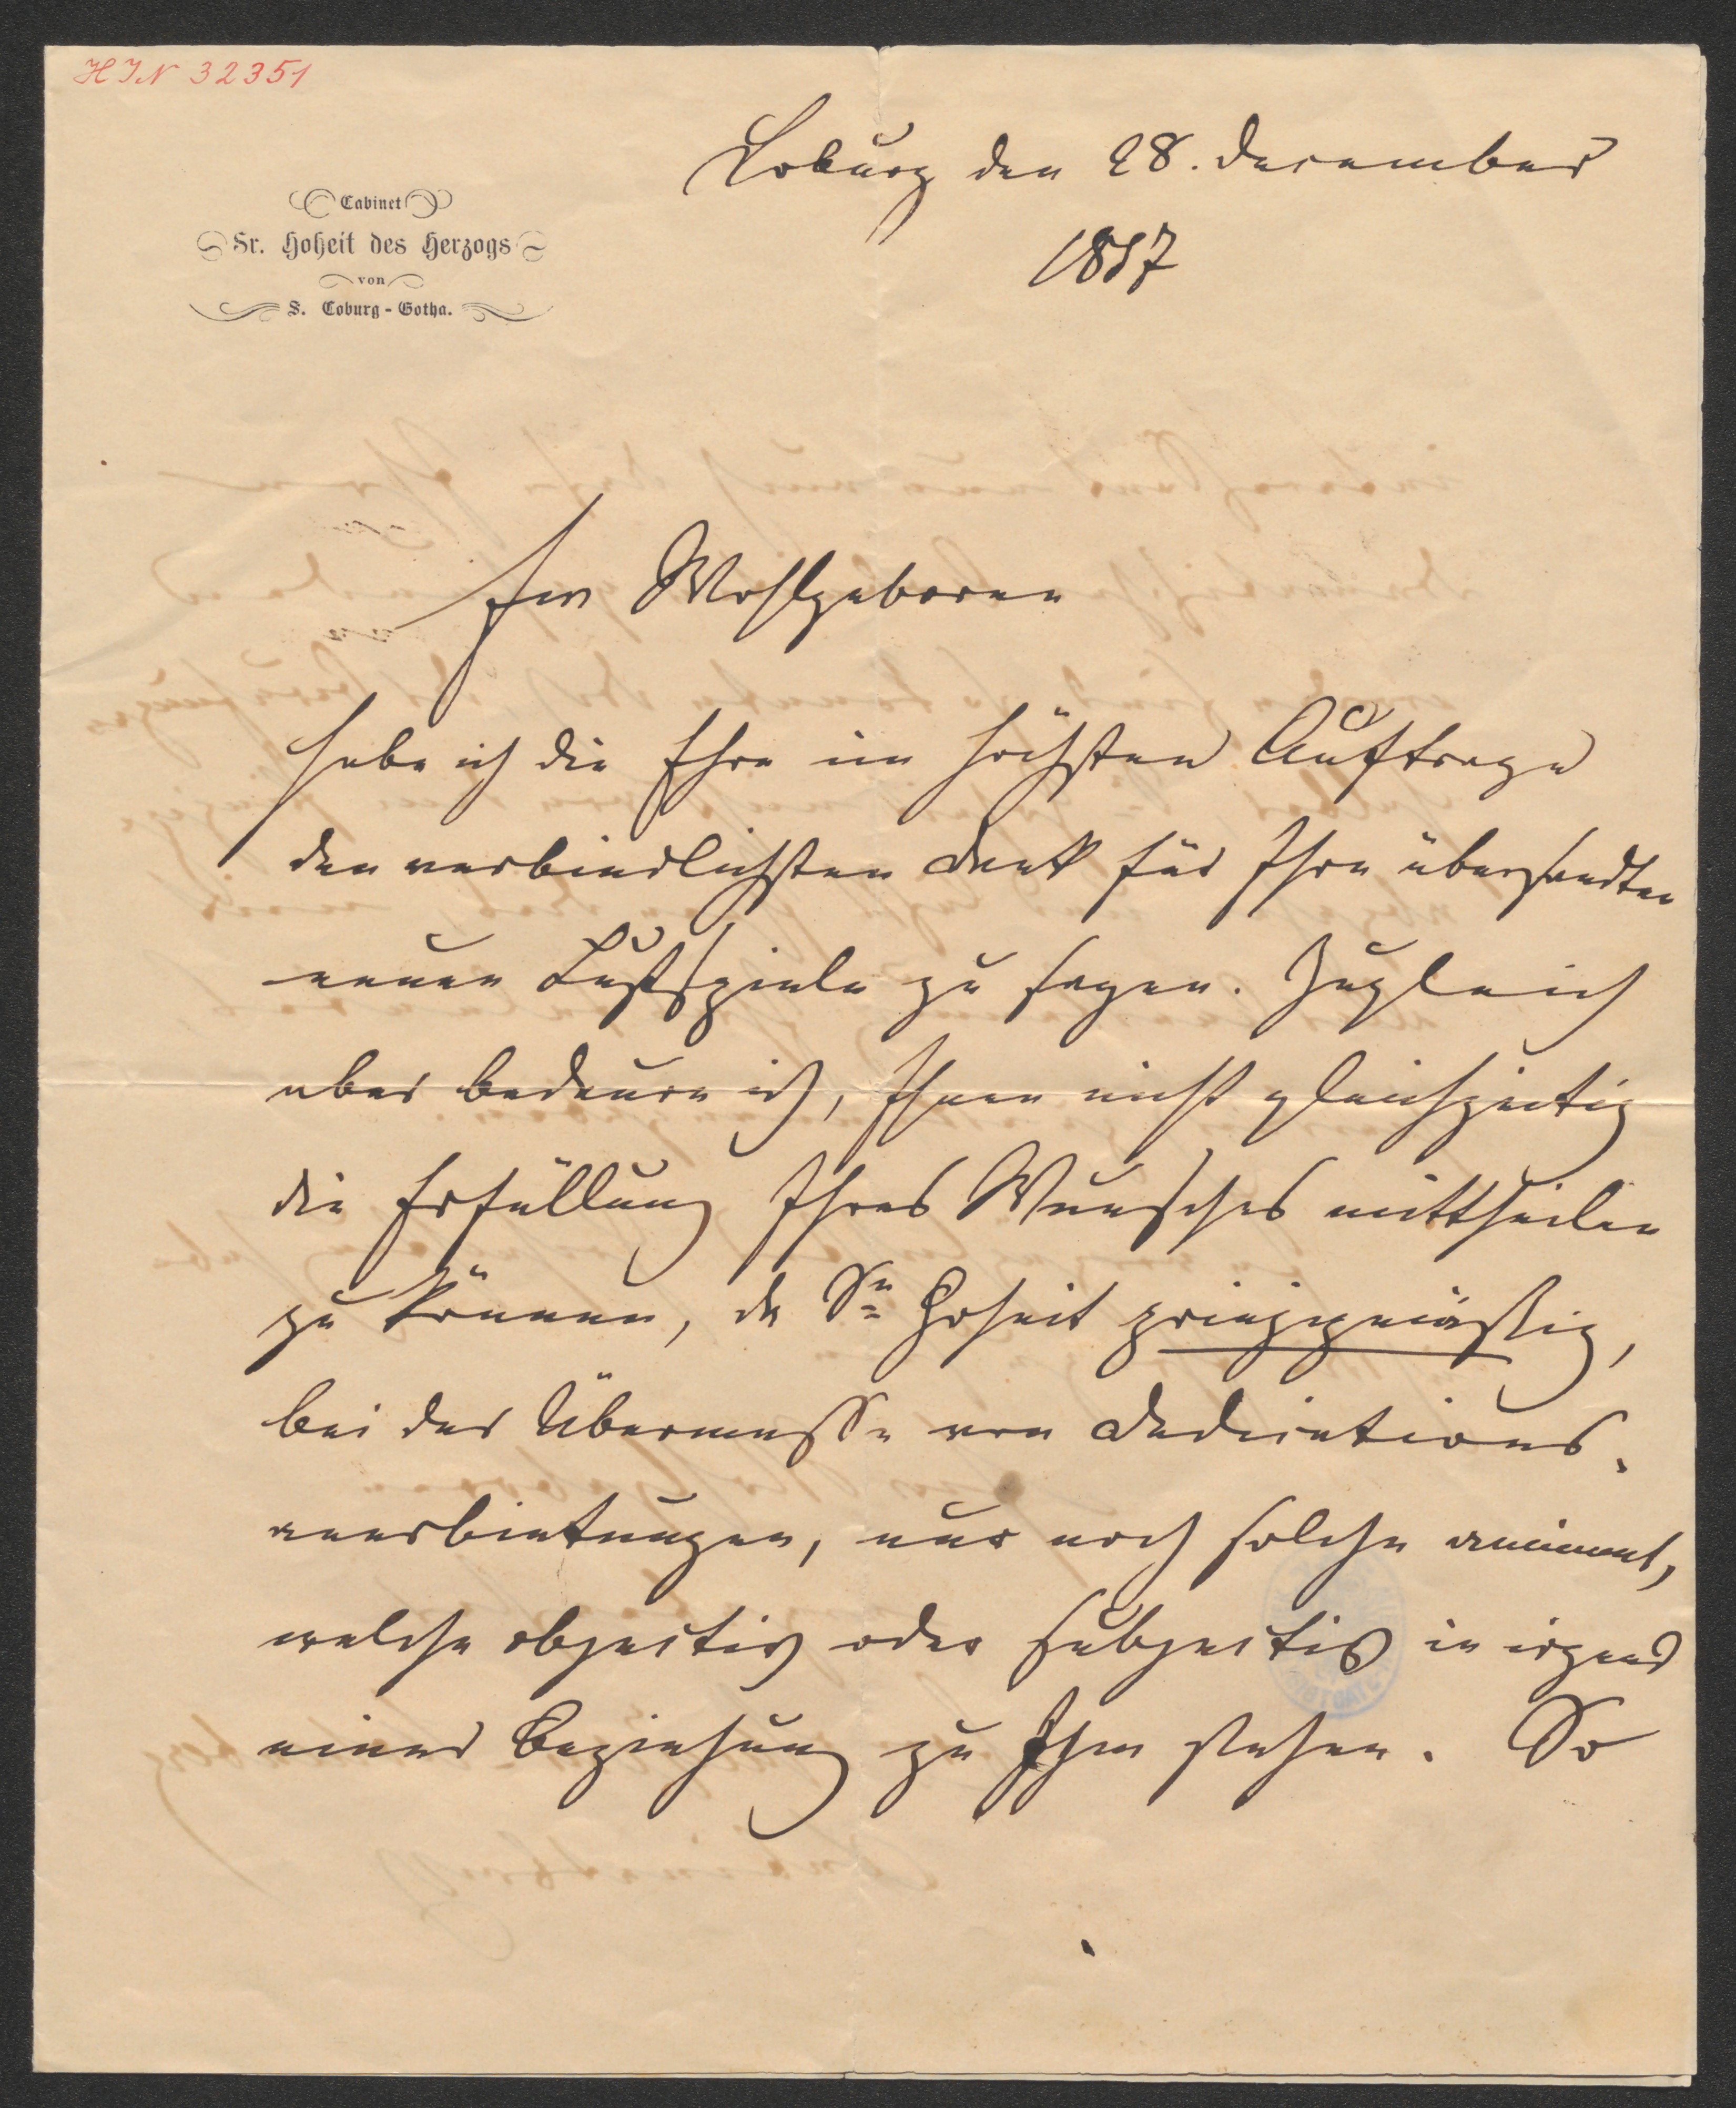 HIN 32351
Coburg den 28. December
1857
Cabinet
Sr. Hoheit des Herzogs
von
S. Coburg-Gotha.
Ew Wohlgeboren
habe ich die Ehre im höchsten Auftrage
den verbindlichsten Dank für Ihre übersandten
neuen Lustspiele zu sagen. Zugleich
aber bedaure ich, Ihnen nicht gleichzeitig
die Erfüllung Ihres Wunsches mittheilen
zu können, da Se Hoheit prinzipmäßig,
bei der Übermasse von Dedications-
anerbietungen, nur noch solche annimmt,
welche objectiv oder subjectiv in irgend
einer Beziehung zu Ihm stehen. So